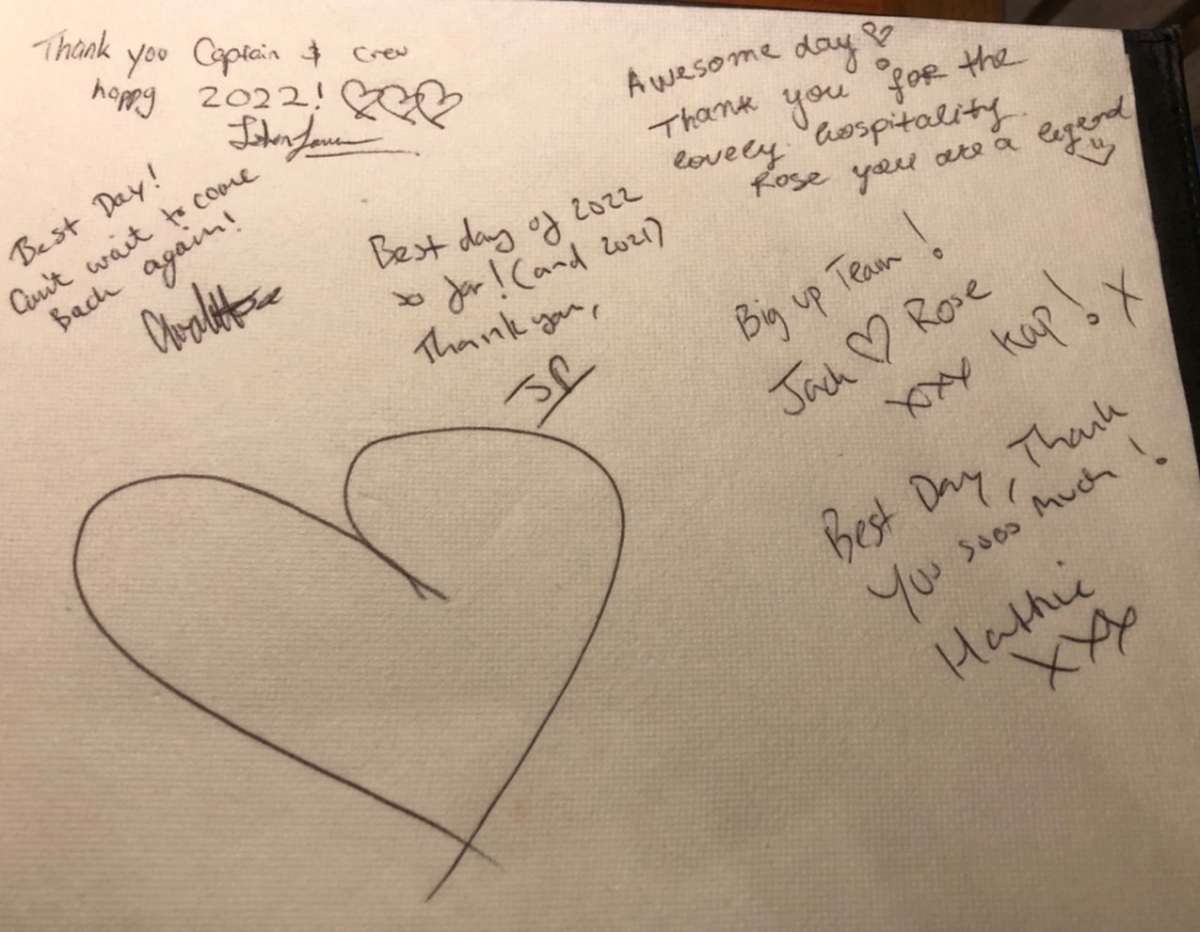 Thank you Captain & crew
happy 2022!
Best Day!
Can't wait to come
Back again!
Best day of 2022
so far! (and 2021)
Thank you,
JP
Awesome day
Thank you for the
lovely hospitality.
Rose you are a legend
Big up Team!
Jack Rose
xxx Kap! x
Best Day, Thank
you sooo much!
Hattie
xxx